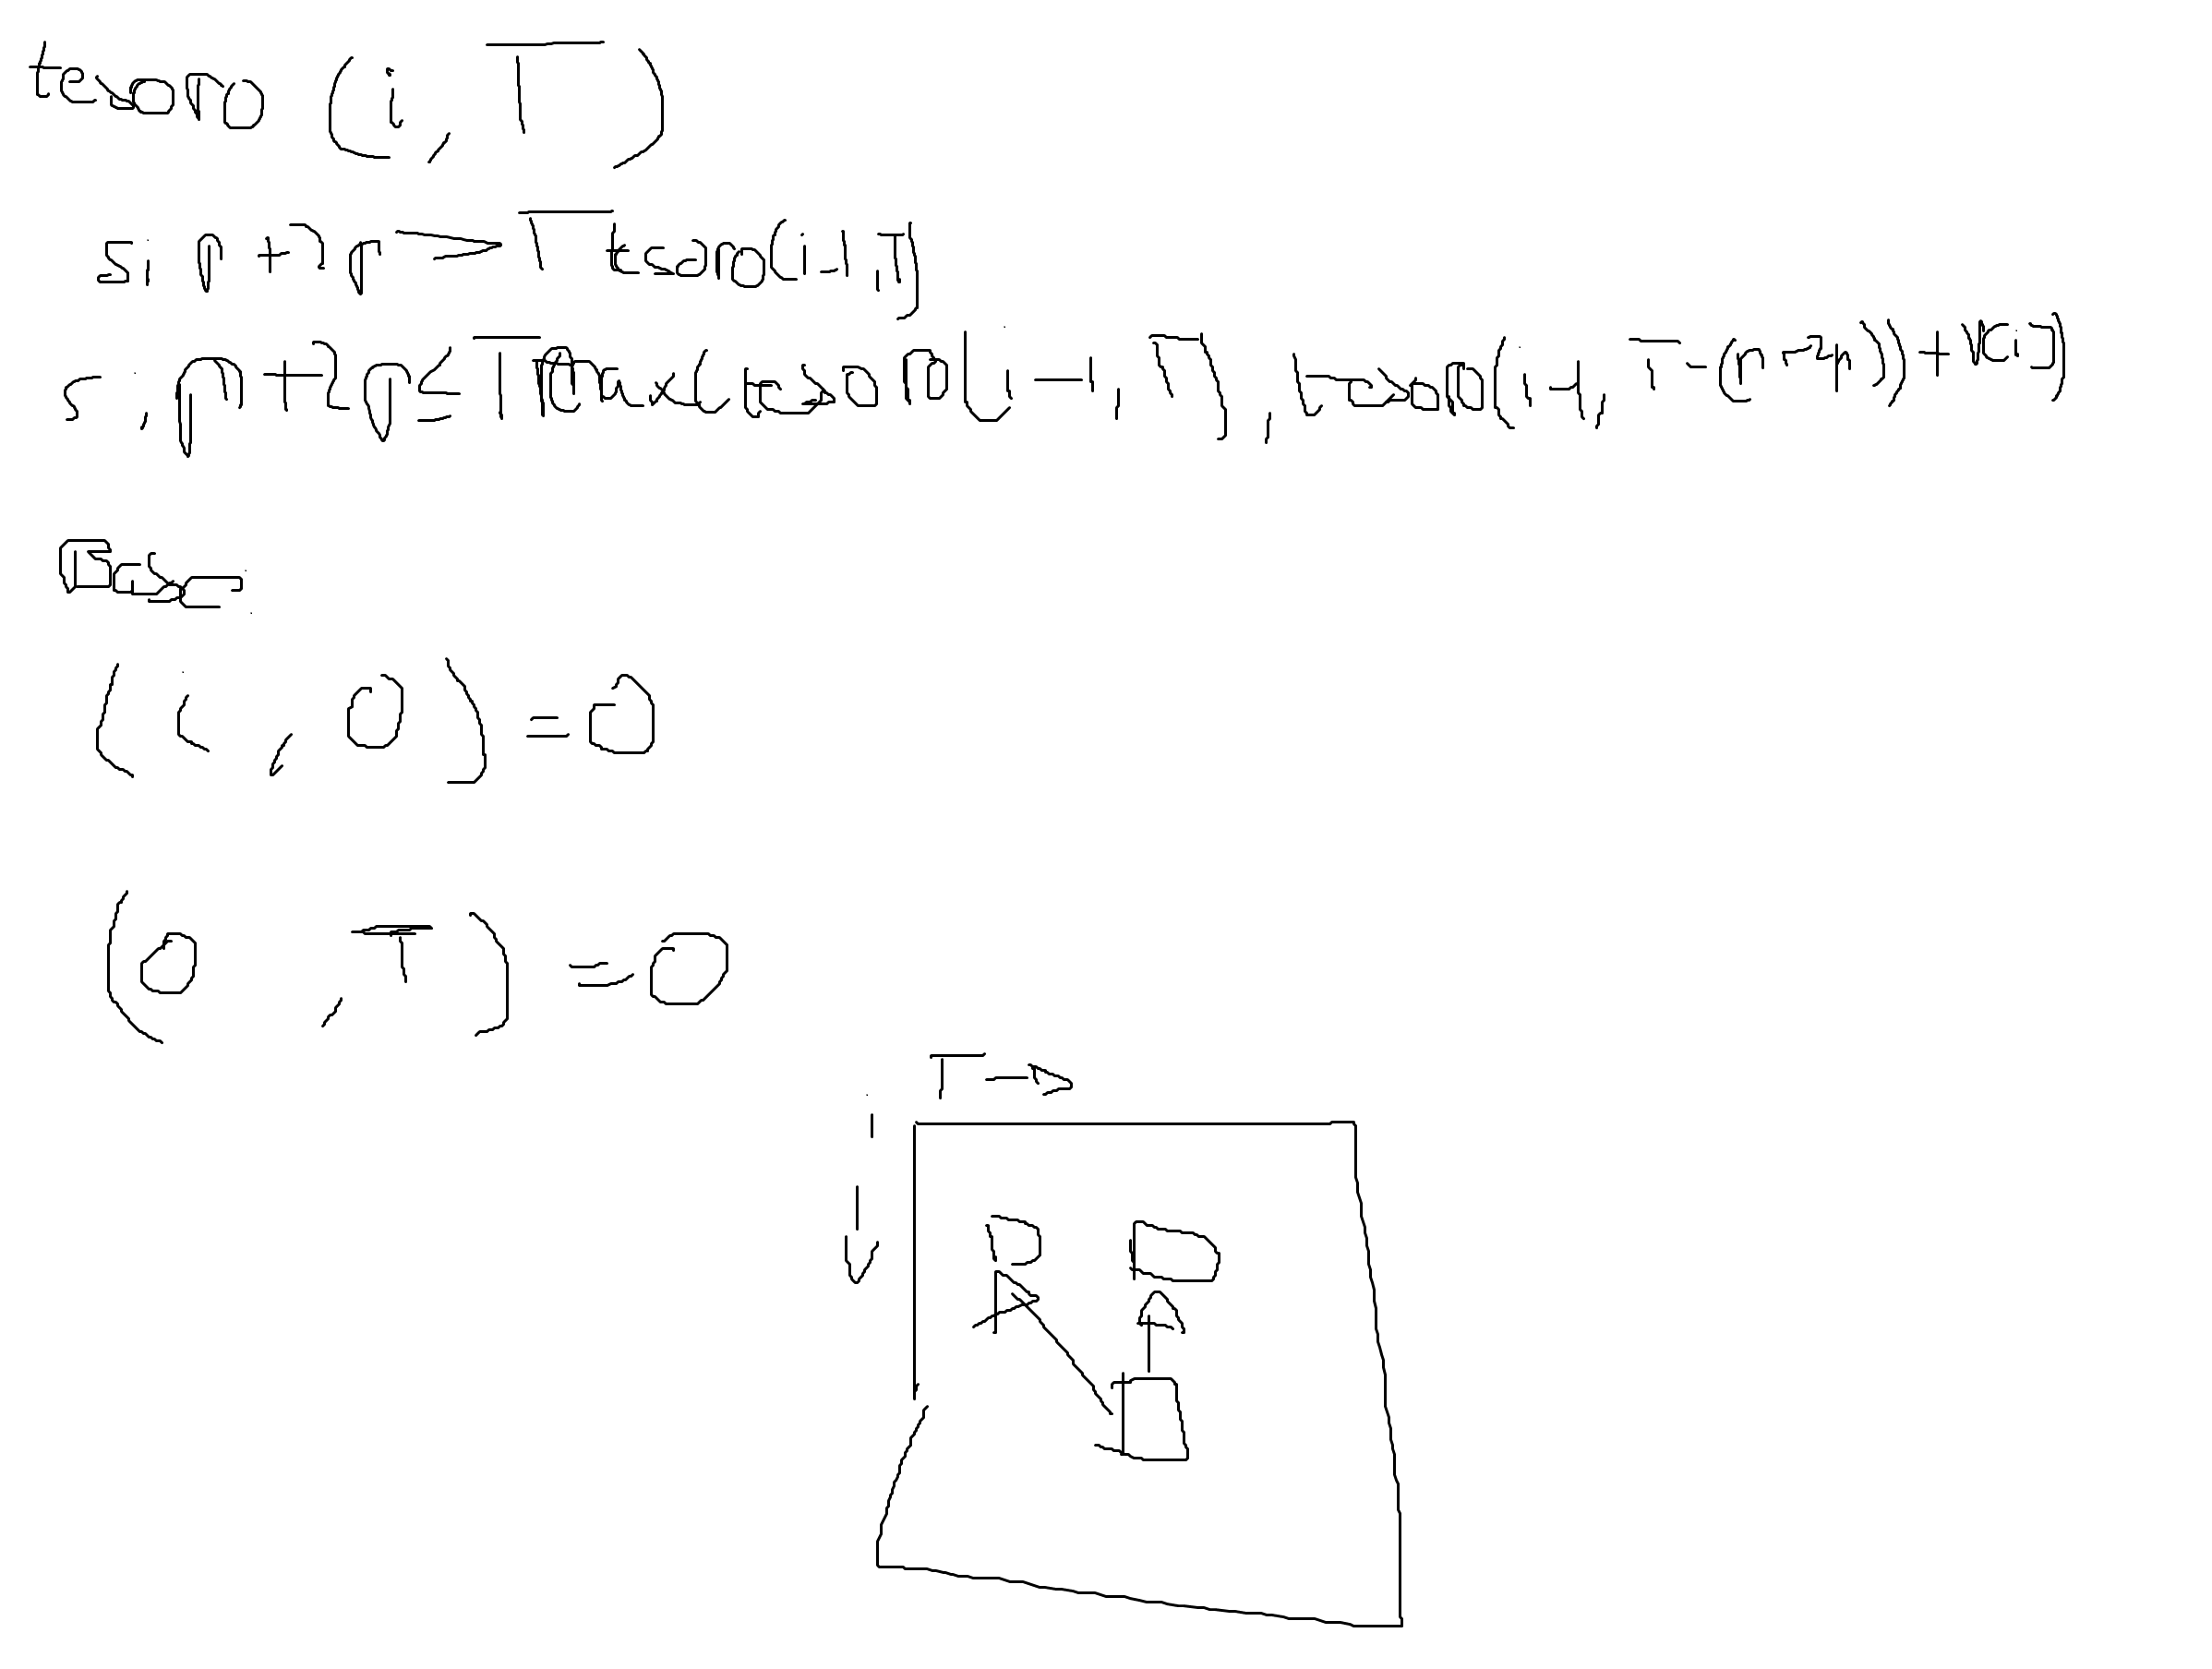 tesoro (i, T)
si p+2p > T tesoro(i-1,T)
si p+2p ≤ T max(tesoro(i-1, T), tesoro(i-1, T-(p+2p))+V[i])
Base:
(i, 0) = 0
(0, T) = 0
T →
i